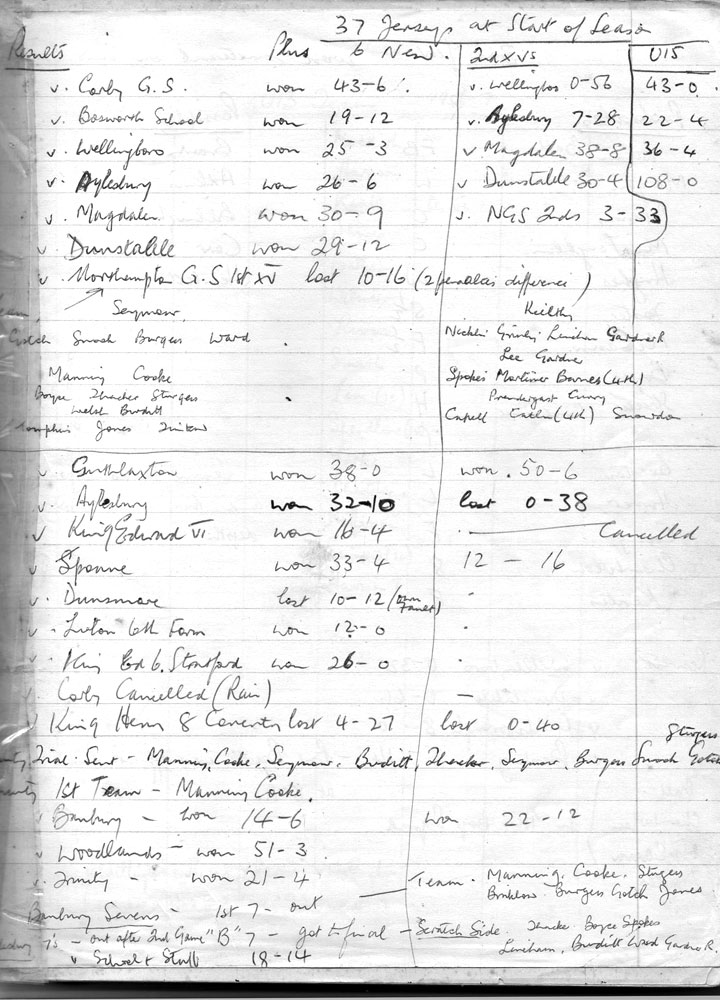 37 Jerseys at Start of Season
Results Plus 6 New. 2nd XVs U15
v. Corby G.S. won 43-6 v. Wellingboro 0-56 43-0
v. Bosworth School won 19-12 v. Aylesbury 7-28 22-4
v. Wellingboro won 25-3 v Magdalen 38-8 36-4
v. Aylesbury won 26-6 v Dunstable 30-4 108-0
v. Magdalen won 30-9 v. NGS 2nds 3-33
v. Dunstable won 29-12
v. Northampton G.S 1st XV lost 10-16 (2 penalties difference)
Seymour,
Gotch Smooh Burgess Ward
Manning Cooke
Boyce Thacker Sturgess
Welsh Burditt
Jones
Lee Gardner
Spokes Mortimer Barnes (4th)
Prendergast Curry
Capell (4th) Snowdon
v. Guthlaxton won 38-0 won. 50-6
v. Aylesbury won 32-10 lost 0-38
v King Edward VI won 16-4 Cancelled
v. Sponne won 33-4 12 - 16
v. Dunsmore lost 10-12
v. Luton 6th Form won 12-0
v. King Ed 6. Stratford won 26-0
v. Corby Cancelled (Rain) -
v King Henry 8 Coventry lost 4-27 lost 0-40
Sturgess
Trial. Sent - Manning, Cooke, Seymour, Burditt, Thacker, Seymour, Burgess Smooh Gotch
1st Team - Manning Cooke.
v Banbury - won 14-6 won 22-12
v Woodlands - won 51-3
v Trinity - won 21-4 Team. Manning. Cooke. Sturgess
Burgess Gotch Jones
Banbury Sevens - 1st 7 - out
7's - out after 2nd Game "B" 7 - got to final - Scratch Side. Thacker Boyce Spokes
Lineham, Burditt Ward Gardner R.
v School & Staff 18-14